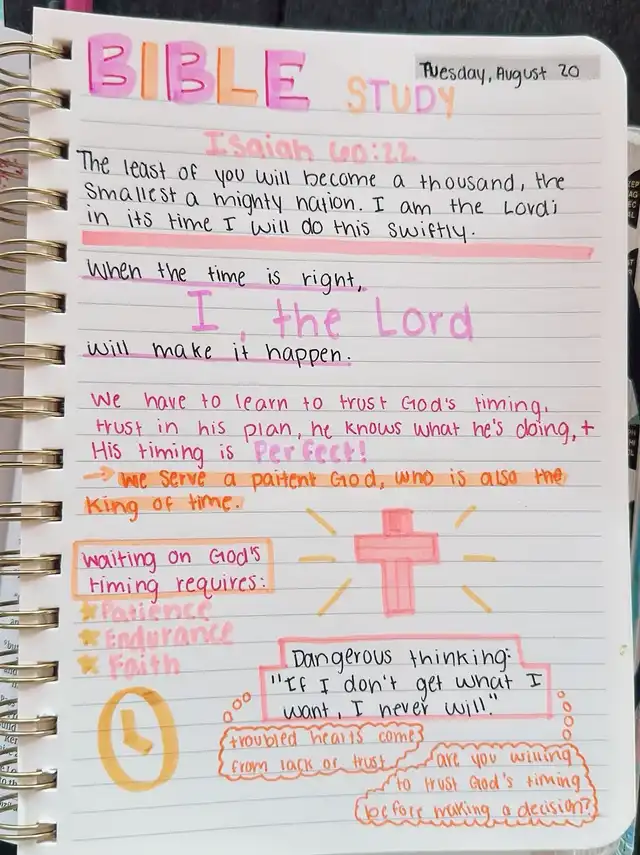 BIBLE STUDY
Tuesday, August 20
Isaiah 60:22
The least of you will become a thousand, the
smallest a mighty nation. I am the Lord;
in its time I will do this swiftly.
When the time is right,
I, the Lord
will make it happen.
We have to learn to trust God's timing,
trust in his plan, he knows what he's doing, +
His timing is Perfect!
→ we serve a paitent God, who is also the
King of time.
waiting on God's
timing requires:
Patience
Endurance
Faith
Dangerous thinking:
"If I don't get what I
want, I never will."
troubled hearts come
from lack of trust
are you willing
to trust God's timing
before making a decision?